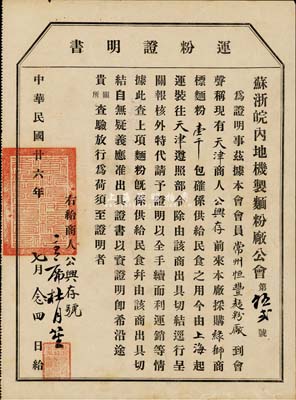 運粉證明書
蘇浙皖內地機製麵粉廠公會 第伍弍號
為證明事茲據本會會員常州恒豐麵粉廠到會
聲稱現有天津商人公興存前來本廠採購綠獅商
標麵粉壹千包確係供給民食之用今由上海起
運裝往天津遵照部令除由該商出具切結逕行呈
關報核外特代請予證明以全手續而利運銷等情
據此查上項麵粉旣係供給民食幷由該商出具切
結自無疑義應准出具證書以資證明卽希沿途
貴關所查驗放行為荷須至證明者
右給商人公興存號
中華民國廿六年 七月念四日給